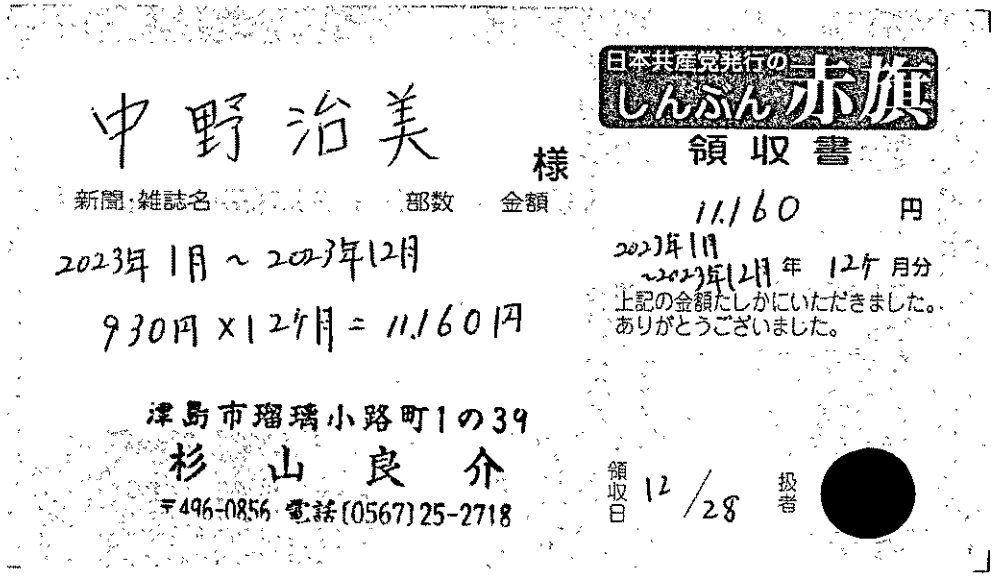 中野治美 様
新聞・雑誌名 部数 金額
2023年1月〜2023年12月
930円×12ケ月=11.160円
津島市瑠璃小路町1の39
杉山良介
〒496-0856 電話(0567)25-2718
日本共産党発行の
しんぶん赤旗
領収書
11.160 円
2023年1月
〜2023年12月 年 12ケ月分
上記の金額たしかにいただきました。
ありがとうございました。
領収日 12/28 扱者